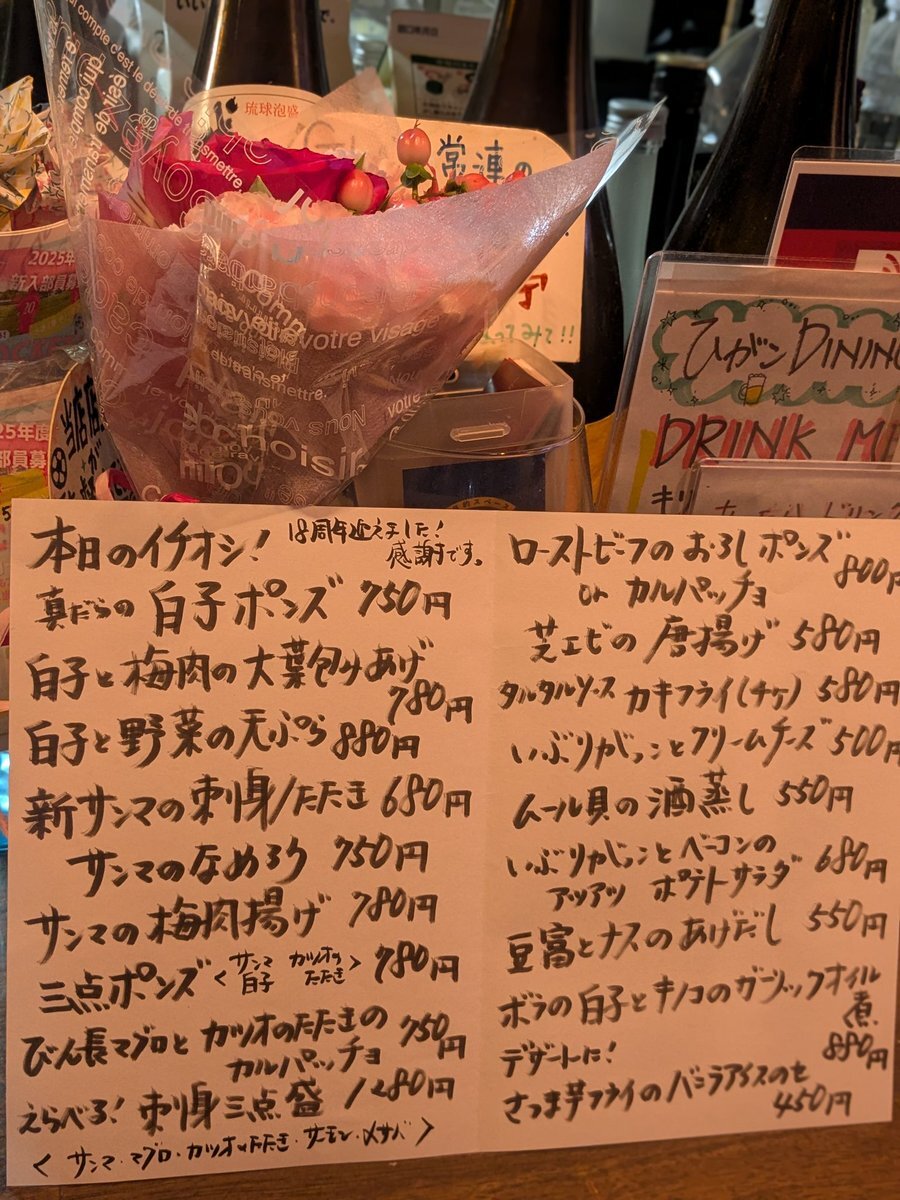 琉球泡盛
常連の
votre visage
2025年
新入部員募
ひがシDINING
DRINK M
本日のイチオシ!
18周年迎えました!
感謝です。
真だらの 白子ポンズ 750円
白子と梅肉の大葉包みあげ
780円
白子と野菜の天ぷら 880円
新サンマの刺身/たたき 680円
サンマのなめろう 750円
サンマの梅肉揚げ 780円
三点ポンズ <サンマ 白子 カツオのたたき> 780円
びん長マグロと カツオのたたきの
カルパッチョ 750円
えらべる! 刺身三点盛 1280円
< サンマ・マグロ・カツオのたたき・サーモン・〆サバ >
ローストビーフの おろしポンズ
or カルパッチョ 800円
芝エビの 唐揚げ 580円
タルタルソース カキフライ(チケ) 580円
いぶりがっことクリームチーズ 500円
ムール貝の酒蒸し 550円
いぶりがっこと ベーコンの
アツアツ ポテトサラダ 680円
豆富とナスのあげだし 550円
ボラの白子とキノコのガーリックオイル
煮 880円
デザートに!
さつま芋フライのバニラアイスのせ
450円